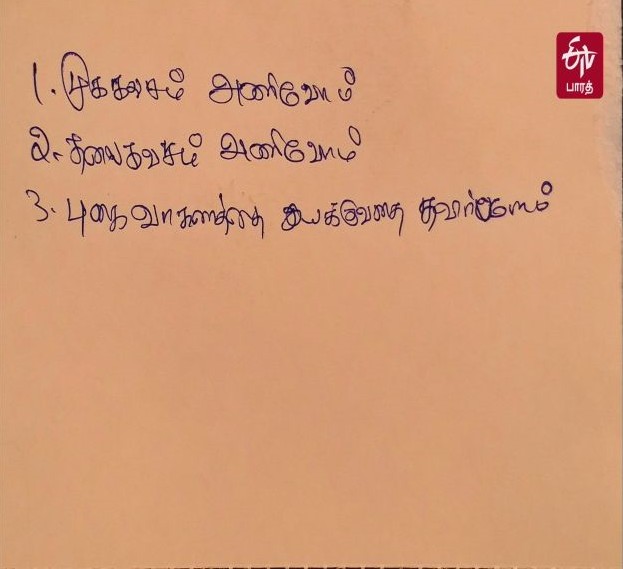 1. முககவசம் அணிவோம்
2. தலைகவசம் அணிவோம்
3. புகை வாகனத்தை இயக்குவதை தவிர்ப்போம்
ETV
பாரத்